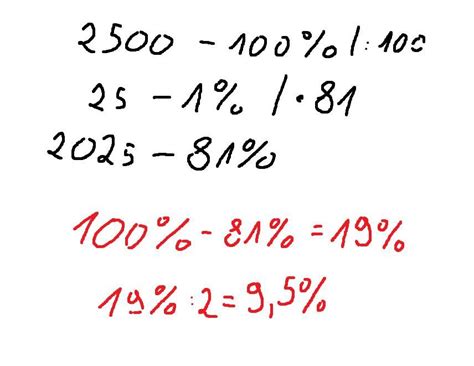 2500 - 100% | : 100
25 - 1% | · 81
2025 - 81%
100% - 81% = 19%
19% : 2 = 9,5%